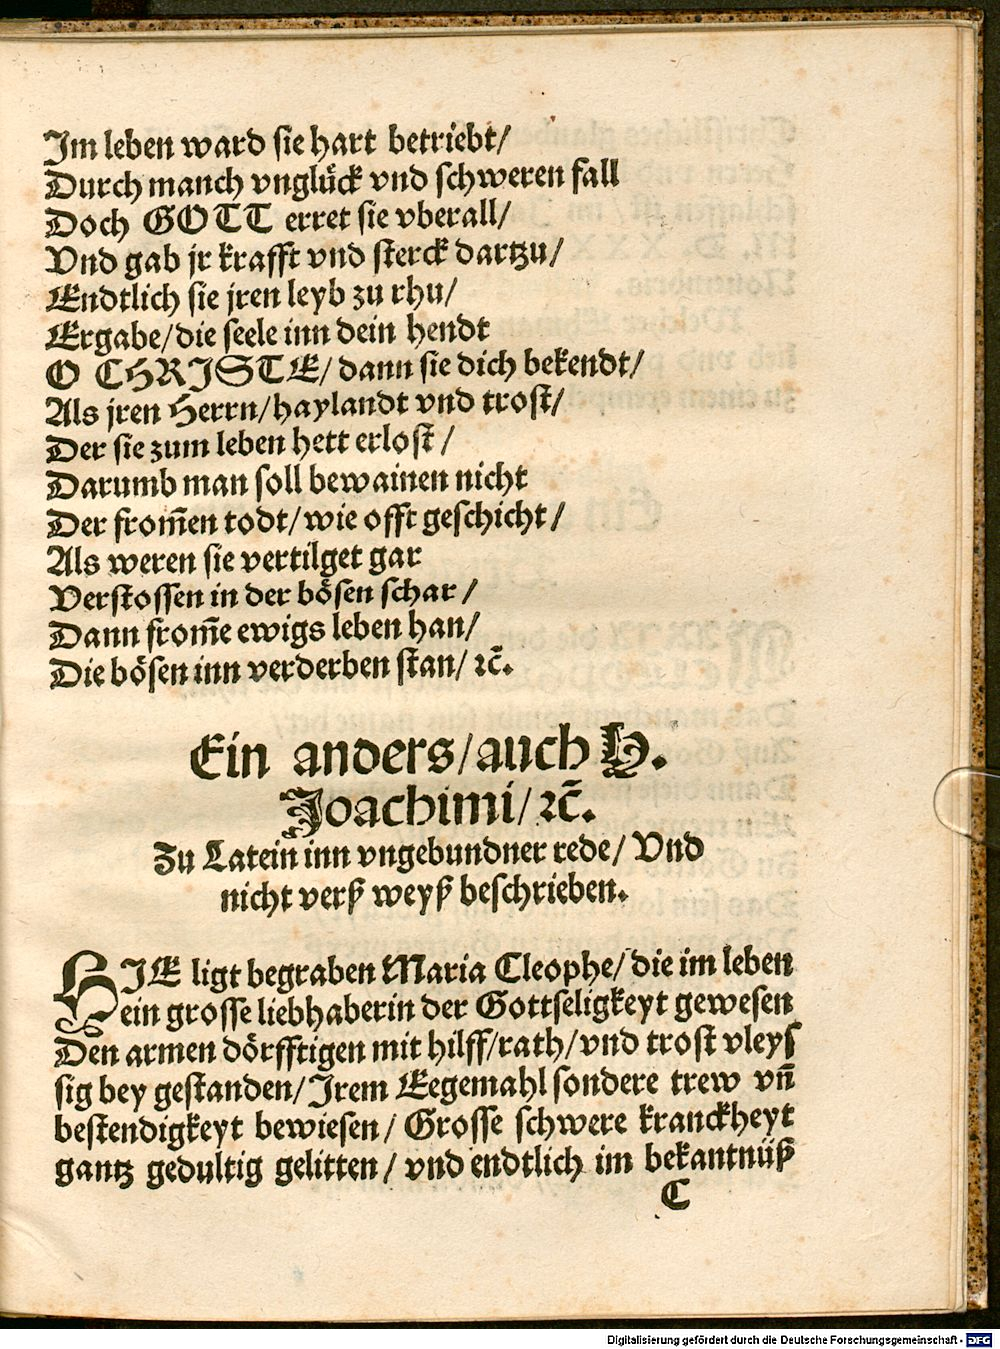 Im leben ward sie hart betriebt/
Durch manch vnglück vnd schweren fall
Doch GOTT erret sie vberall/
Vnd gab jr krafft vnd sterck dartzu/
Endtlich sie jren leyb zu rhu/
Ergabe/die seele inn dein hendt
O CHRISTE/ dann sie dich bekendt/
Als jren Herrn/haylandt vnd trost/
Der sie zum leben hett erlost/
Darumb man soll bewainen nicht
Der from̄en todt/wie offt geschicht/
Als weren sie vertilget gar
Verstossen in der bösen schar/
Dann from̄e ewigs leben han/
Die bösen inn verderben stan/ ꝛc̄.
Ein anders/auch H.
Joachimi/ꝛc̄.
Zu Latein inn vngebundner rede/ Vnd
nicht verß weyß beschrieben.
HIE ligt begraben Maria Cleophe/die im leben
ein grosse liebhaberin der Gottseligkeyt gewesen
Den armen dörfftigen mit hilff/rath/vnd trost vleys
sig bey gestanden/Irem Eegemahl sondere trew vn̄
bestendigkeyt bewiesen/ Grosse schwere kranckheyt
gantz gedultig gelitten/ vnd endtlich im bekantnüß
C
Digitalisierung gefördert durch die Deutsche Forschungsgemeinschaft - DFG